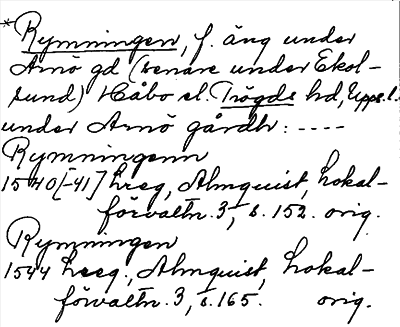 *Rymningen, f. äng under
Arnö gd (senare under Ekol-
sund) Håbo el. Trögds hd, Upps. l.
under Arnö gårdh: ----
Rymningenn
1540[-41] hreg, Almquist, Lokal-
förvaltn. 3, s. 152. orig.
Rymningen
1544 hreg., Almquist, Lokal-
förvaltn. 3, s. 165. orig.